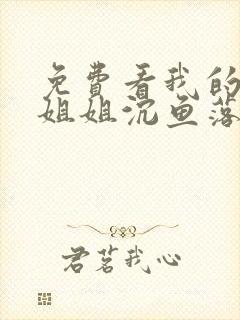 免费看我的
姐姐沉鱼落
君茗我心